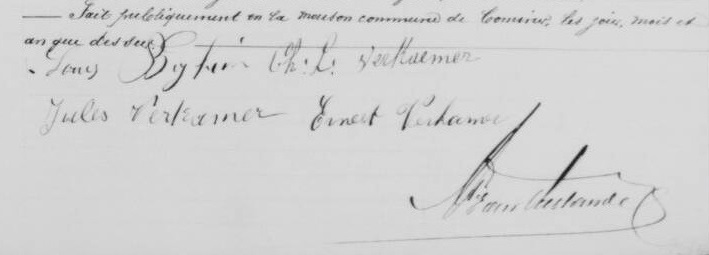 — Fait publiquement en la maison commune de Comines, les jour, mois et
an que dessus.
Louis Ch. L. Verkaemer
Jules Verkamer Ernest Verkamer